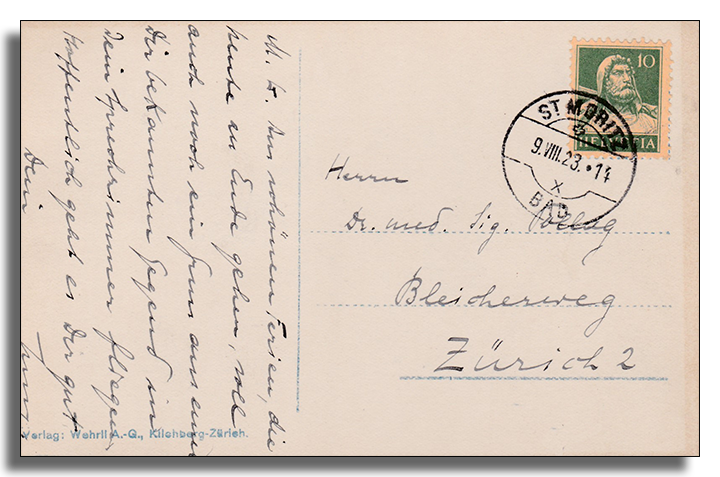 M. L. Aus schönen Ferien, die
heute zu Ende gehen, soll
auch noch ein Gruss aus einer
Dir bekannten Gegend in
Dein Sprechzimmer fliegen.
Hoffentlich geht es Dir gut
Dein
Verlag: Wehrli A.-G., Kilchberg-Zürich.
10
HELVETIA
ST. MORITZ
9.VIII.23.•14
X
BAD
Herrn
Dr. med. Sig.
Bleicherweg
Zürich 2